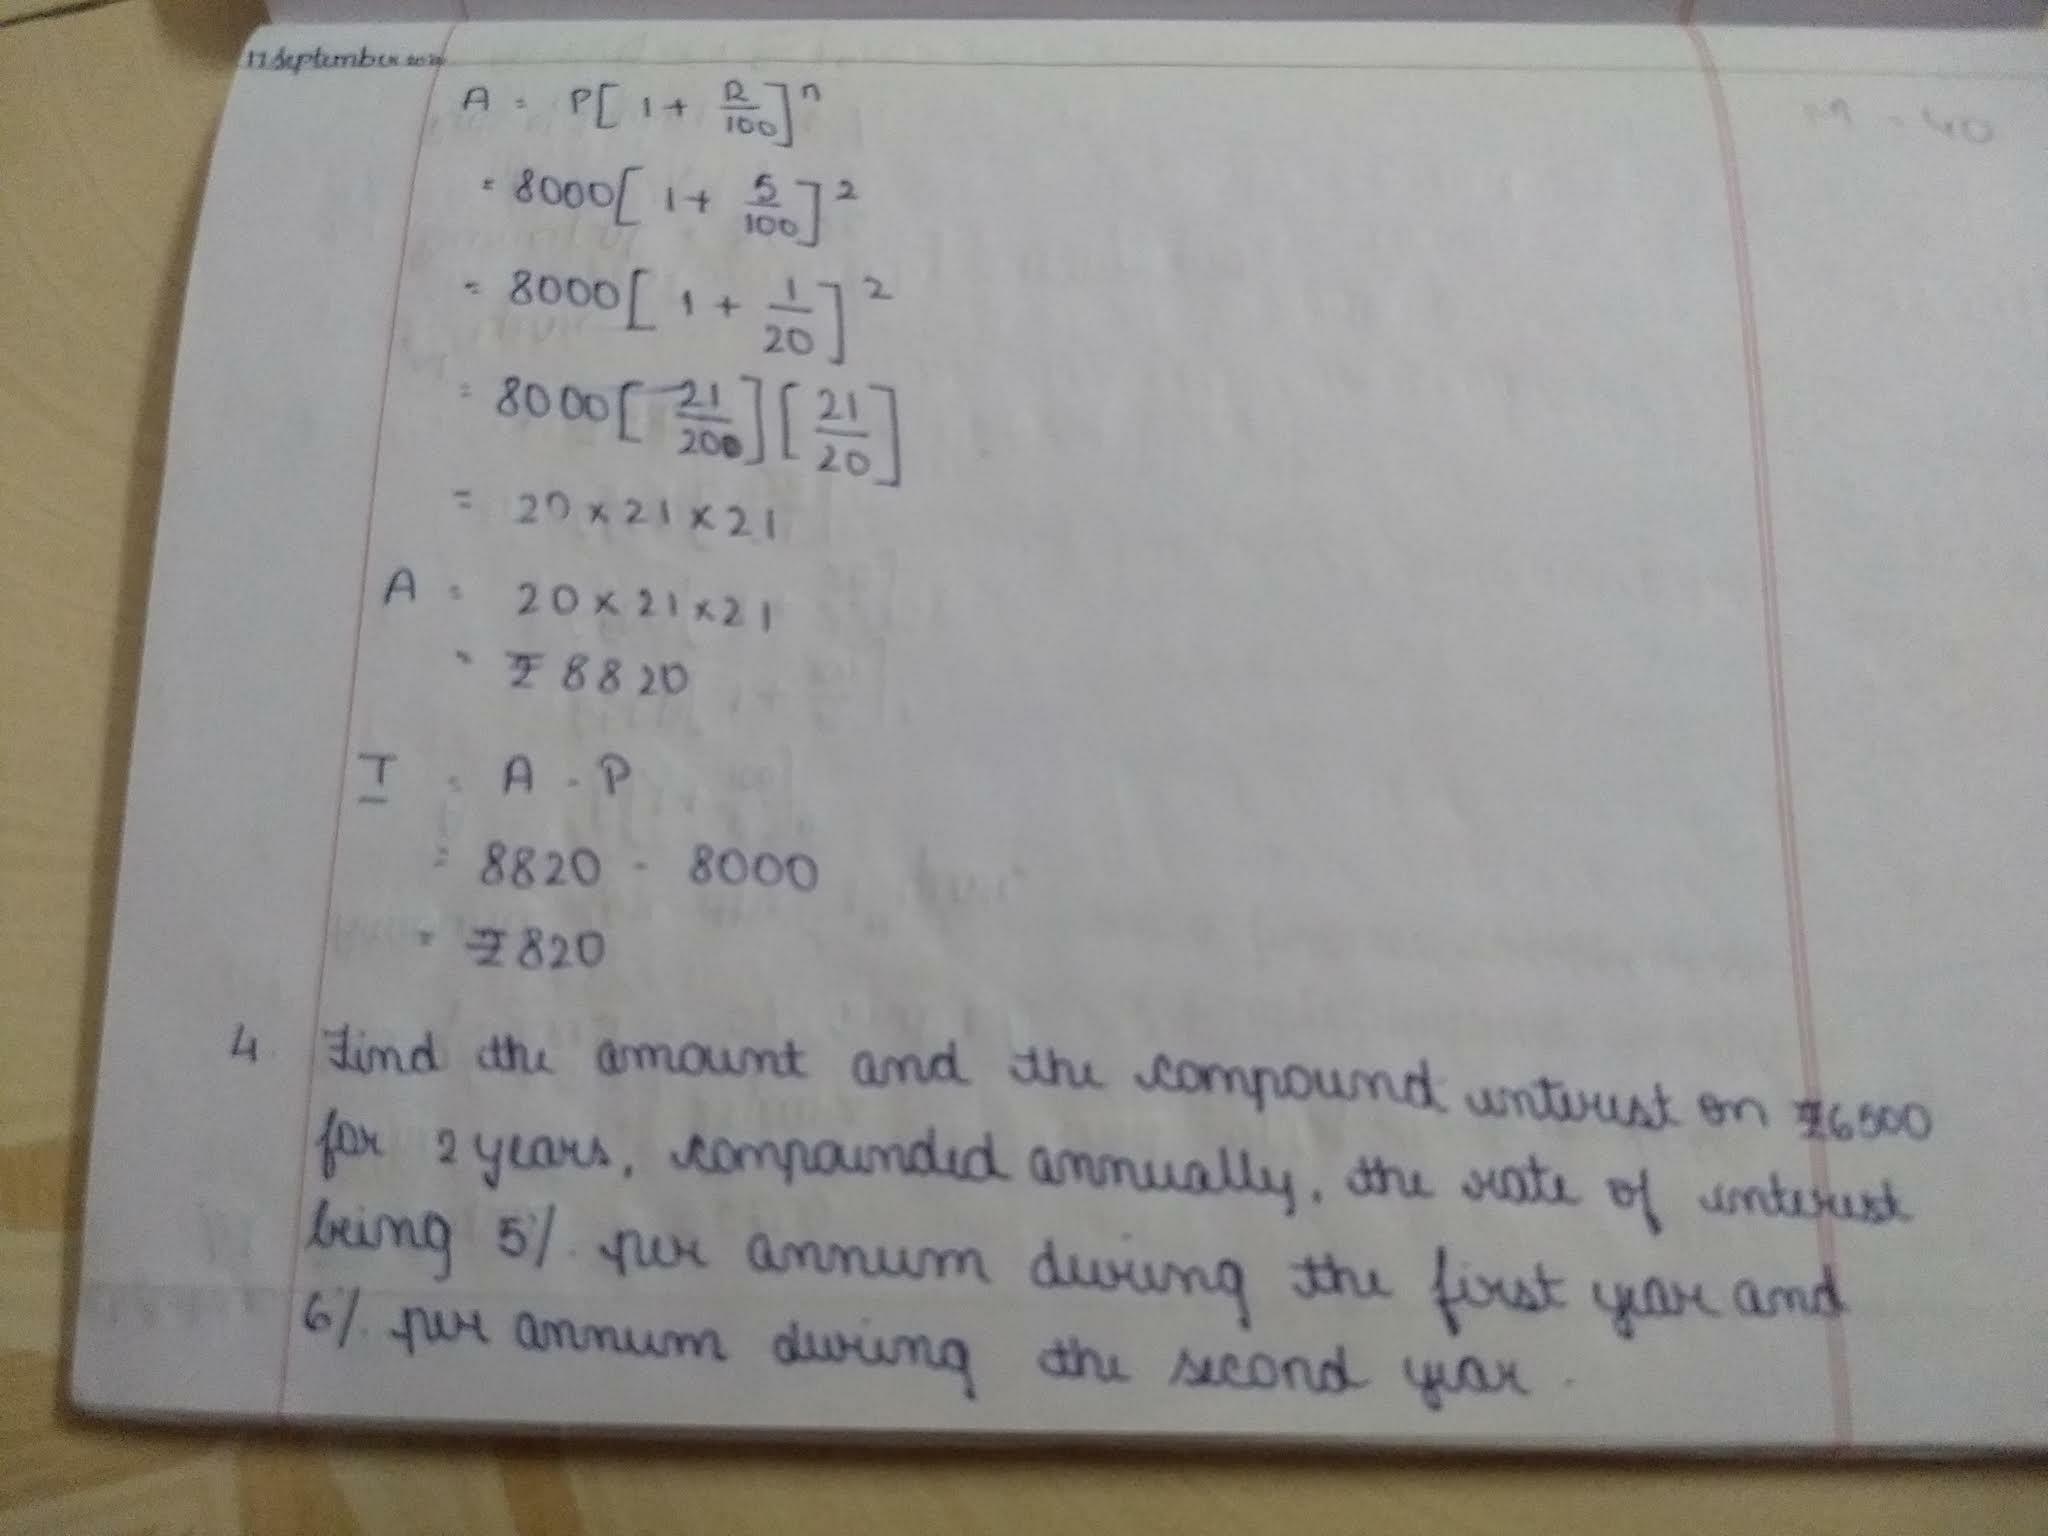 17 September
A = P[1 + R/100]^n
= 8000[1 + 5/100]^2
= 8000[1 + 1/20]^2
= 8000[21/20][21/20]
= 20 × 21 × 21
A = 20 × 21 × 21
= ₹ 8820
I = A - P
= 8820 - 8000
= ₹ 820
4 Find the amount and the compound interest on ₹6500
for 2 years, compounded annually, the rate of interest
being 5% per annum during the first year and
6% per annum during the second year.